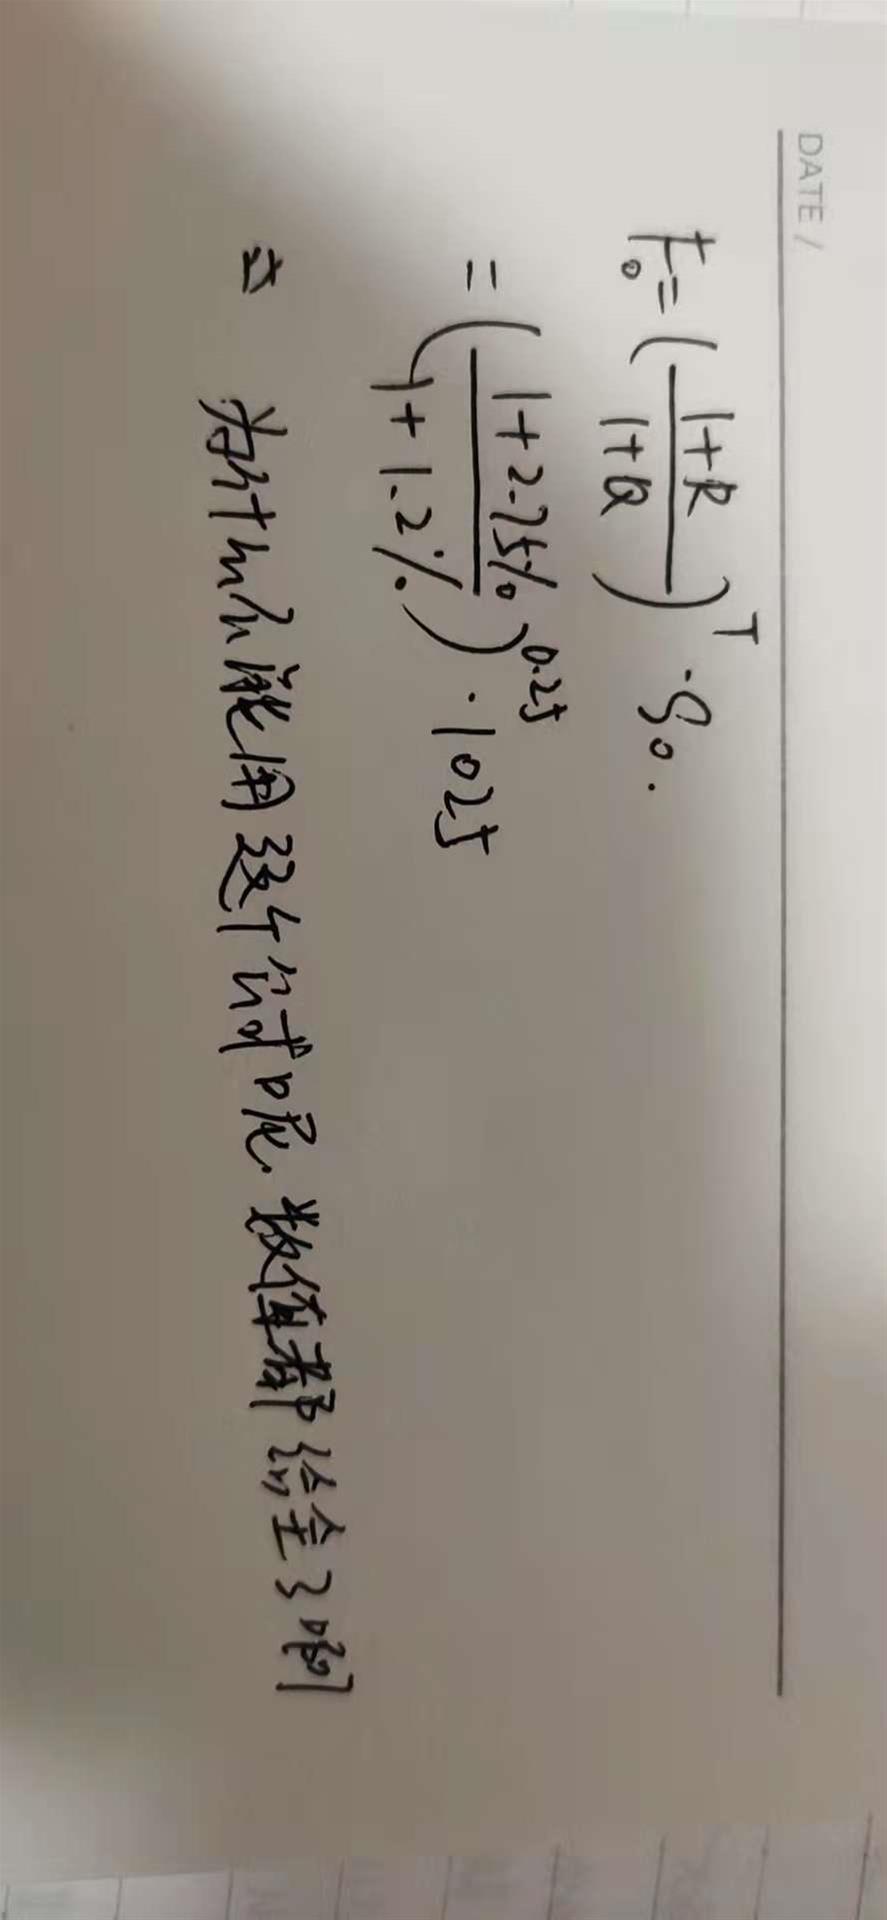 DATE /
F₀ = ( (1+R) / (1+Q) )^T · S₀.
= ( (1+2.75%) / (1+1.2%) )^0.25 · 1025
为什么不能用这个公式呢. 数值都给全了啊